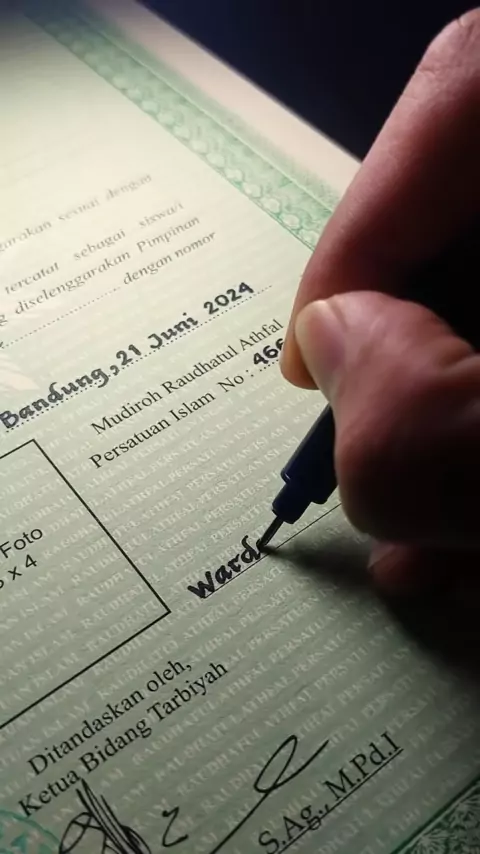 garakan sesuai dengan
tercatat sebagai siswa/i
diselenggarakan Pimpinan
dengan nomor
Bandung, 21 Juni 2024
Mudiroh Raudhatul Athfal
Persatuan Islam No : 466
Foto
x 4
Ward
Ditandaskan oleh,
Ketua Bidang Tarbiyah
S.Ag., M.Pd.I
RAUDHATUL ATHFAL PERSATUAN ISLAM